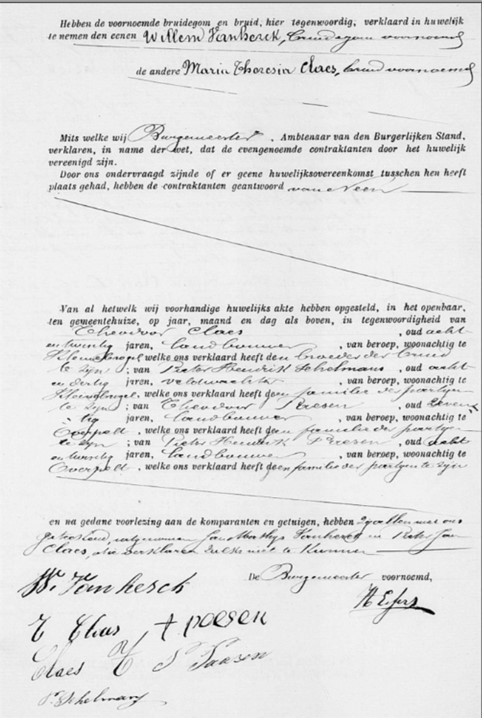 Hebben de voornoemde bruidegom en bruid, hier tegenwoordig, verklaard in huwelijk
te nemen den eenen Willem Vankerck, bruidegom voornoemd
de andere Maria Theresia Claes, bruid voornoemd
Mits welke wij Burgemeester, Ambtenaar van den Burgerlijken Stand,
verklaren, in name der wet, dat de evengenoemde contraktanten door het huwelijk
vereenigd zijn.
Door ons ondervraagd zijnde of er geene huwelijksovereenkomst tusschen hen heeft
plaats gehad, hebben de contraktanten geantwoord van Neen
Van al hetwelk wij voorhandige huwelijks akte hebben opgesteld, in het openbaar,
ten gemeentehuize, op jaar, maand en dag als boven, in tegenwoordigheid van
Theodoor Claes, oud acht
en twintig jaren, landbouwer, van beroep, woonachtig te
welke ons verklaard heeft den broeder der bruid
te zijn; van Pieter Hendrik Schelmans, oud acht
en dertig jaren, veldwachter, van beroep, woonachtig te
welke ons verklaard heeft geen familie der partyen
te zyn; van Theodoor Paesen, oud
tig jaren, landbouwer, van beroep, woonachtig te
Overpelt, welke ons verklaard heeft geen familie der partyen
te zyn; van Pieter Hendrik Paesen, oud acht
en twintig jaren, landbouwer, van beroep, woonachtig te
Overpelt, welke ons verklaard heeft geen familie der partyen te zijn
en na gedane voorlezing aan de komparanten en getuigen, hebben zy allen met ons
geteekend, uitgenomen Vankerck en Pieter Jan
Claes, die verklaren zulks niet te kunnen
De Burgemeester voornoemd,
W. Vankerck
T Claes T poesen
Claes T P Paesen
P. Schelmans